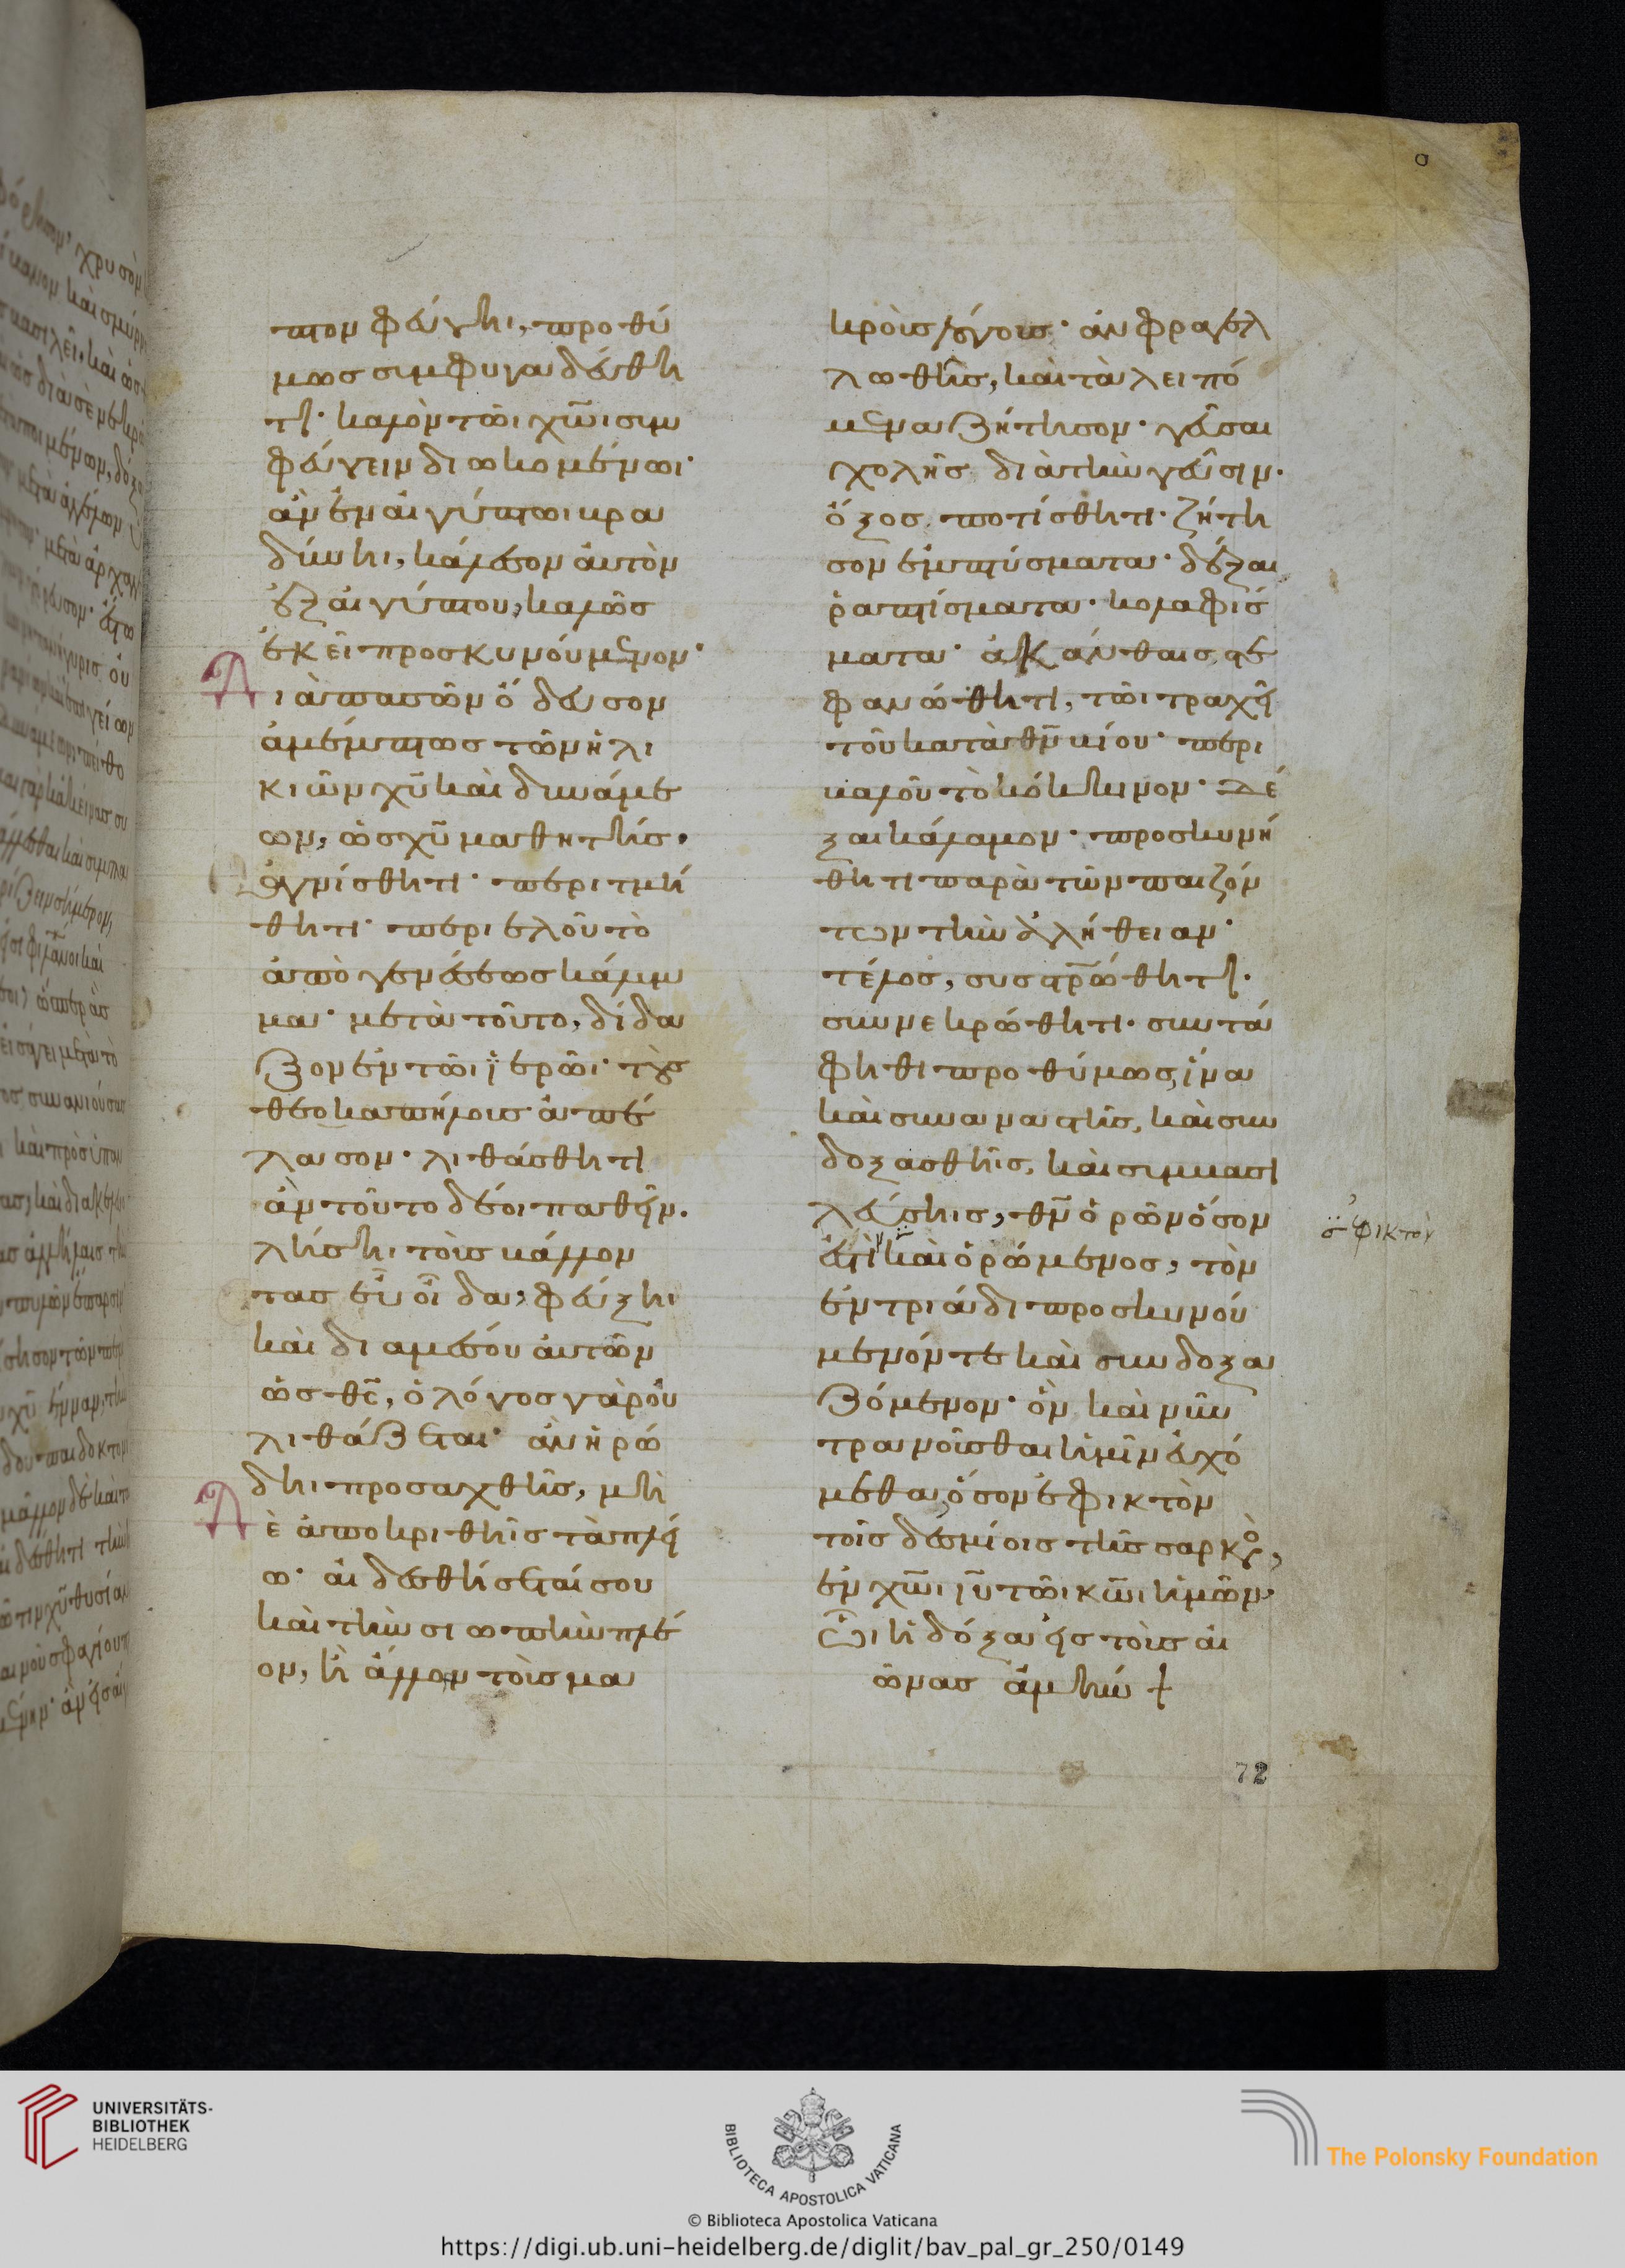 πτον φεύγηι, προθύ
μως συμφυγαδεύθη
τι· καλὸν τῶι χω̅ι συμ
φεύγειν διωκομένωι·
ἂν ἐν αἰγύπτωι βρα
δύνηι, κάλεσον ἀυτὸν
ἐξ αἰγύπτου, καλῶς
ἐκεῖ προσκυνούμενον·
Διὰ πασῶν ὅδευσον
ἀμέμπτως τῶν ἡλι
κιῶν χυ̅ καὶ δυνάμε
ων, ὡς χυ̅ μαθητής.
ἁγνίσθητι· περιτμή
θητι· περιελοῦ τὸ
ἀπὸ γενέσεως κάλυμ
μα· μετὰ τοῦτο, δίδα
ξον ἐν τῶι ϊερῶι· τοὺς
θεοκαπήλους ἀπέ
λασον· λιθάσθητι
ἂν τοῦτο δέοι παθεῖν.
λήσηι τοὺς βάλλον
τας εὖ οἶδα, φεύξηι
καὶ διαμέσου ἀυτῶν
ὡς θς̅, ὁ λόγος γὰρ οὐ
λιθάζεται· ἂν ἡρώ
δηι προσαχθῆις, μὴ
Δὲ ἀποκριθῆις τὰ πλεί
ω· αἰδεσθήσεταί σου
καὶ τὴν σιωπὴν πλέ
ον, ἢ ἄλλων τοὺς μα
κροὺς λόγους· ἂν φραγελ
λωθῆις, καὶ τὰ λειπό
μενα ζήτησον· γεῦσαι
χολῆς διὰ τὴν γεῦσιν.
ὄξος ποτίσθητι· ζήτη
σον ἐμπτύσματα· δέξαι
ῥαπίσματα· κολαφίσ
ματα· ἀκάνθαις στε
φανώθητι, τῶι τραχεῖ
τοῦ κατὰ θν̅ βίου· περι
βαλοῦ τὸ κόκκινον· Δέ
ξαι κάλαμον· προσκυνή
θητι παρὰ τῶν παιζόν
των τὴν ἀλήθειαν·
τέλος, συσταυρώθητι.
συννεκρώθητι· συντά
φηθι προθύμως, ἵνα
καὶ συναναστῆις, καὶ συν
δοξασθῆις, καὶ συμβασι
λεύσηις, θν̅ ὁρῶν ὅσον
ἐστὶ καὶ ὁρώμενος, τὸν
ἐν τριάδι προσκυνού
μενόν τε καὶ συνδοξα
ζόμενον· ὃν καὶ νῦν
τρανοῦσθαι ἡμῖν εὐχό
μεθα, ὅσον ἐφικτὸν
τοῖς δεσμίοις τῆς σαρκὸς,
ἐν χω̅ι ιυ̅ τῶι κω̅ι ἡμῶν,
Ὧι ἡ δόξα εἰς τοὺς αἰ
ῶνας ἀμήν +
ἐφικτὸν
72
UNIVERSITÄTS-
BIBLIOTHEK
HEIDELBERG
BIBLIOTECA APOSTOLICA VATICANA
The Polonsky Foundation
© Biblioteca Apostolica Vaticana
https://digi.ub.uni-heidelberg.de/diglit/bav_pal_gr_250/0149